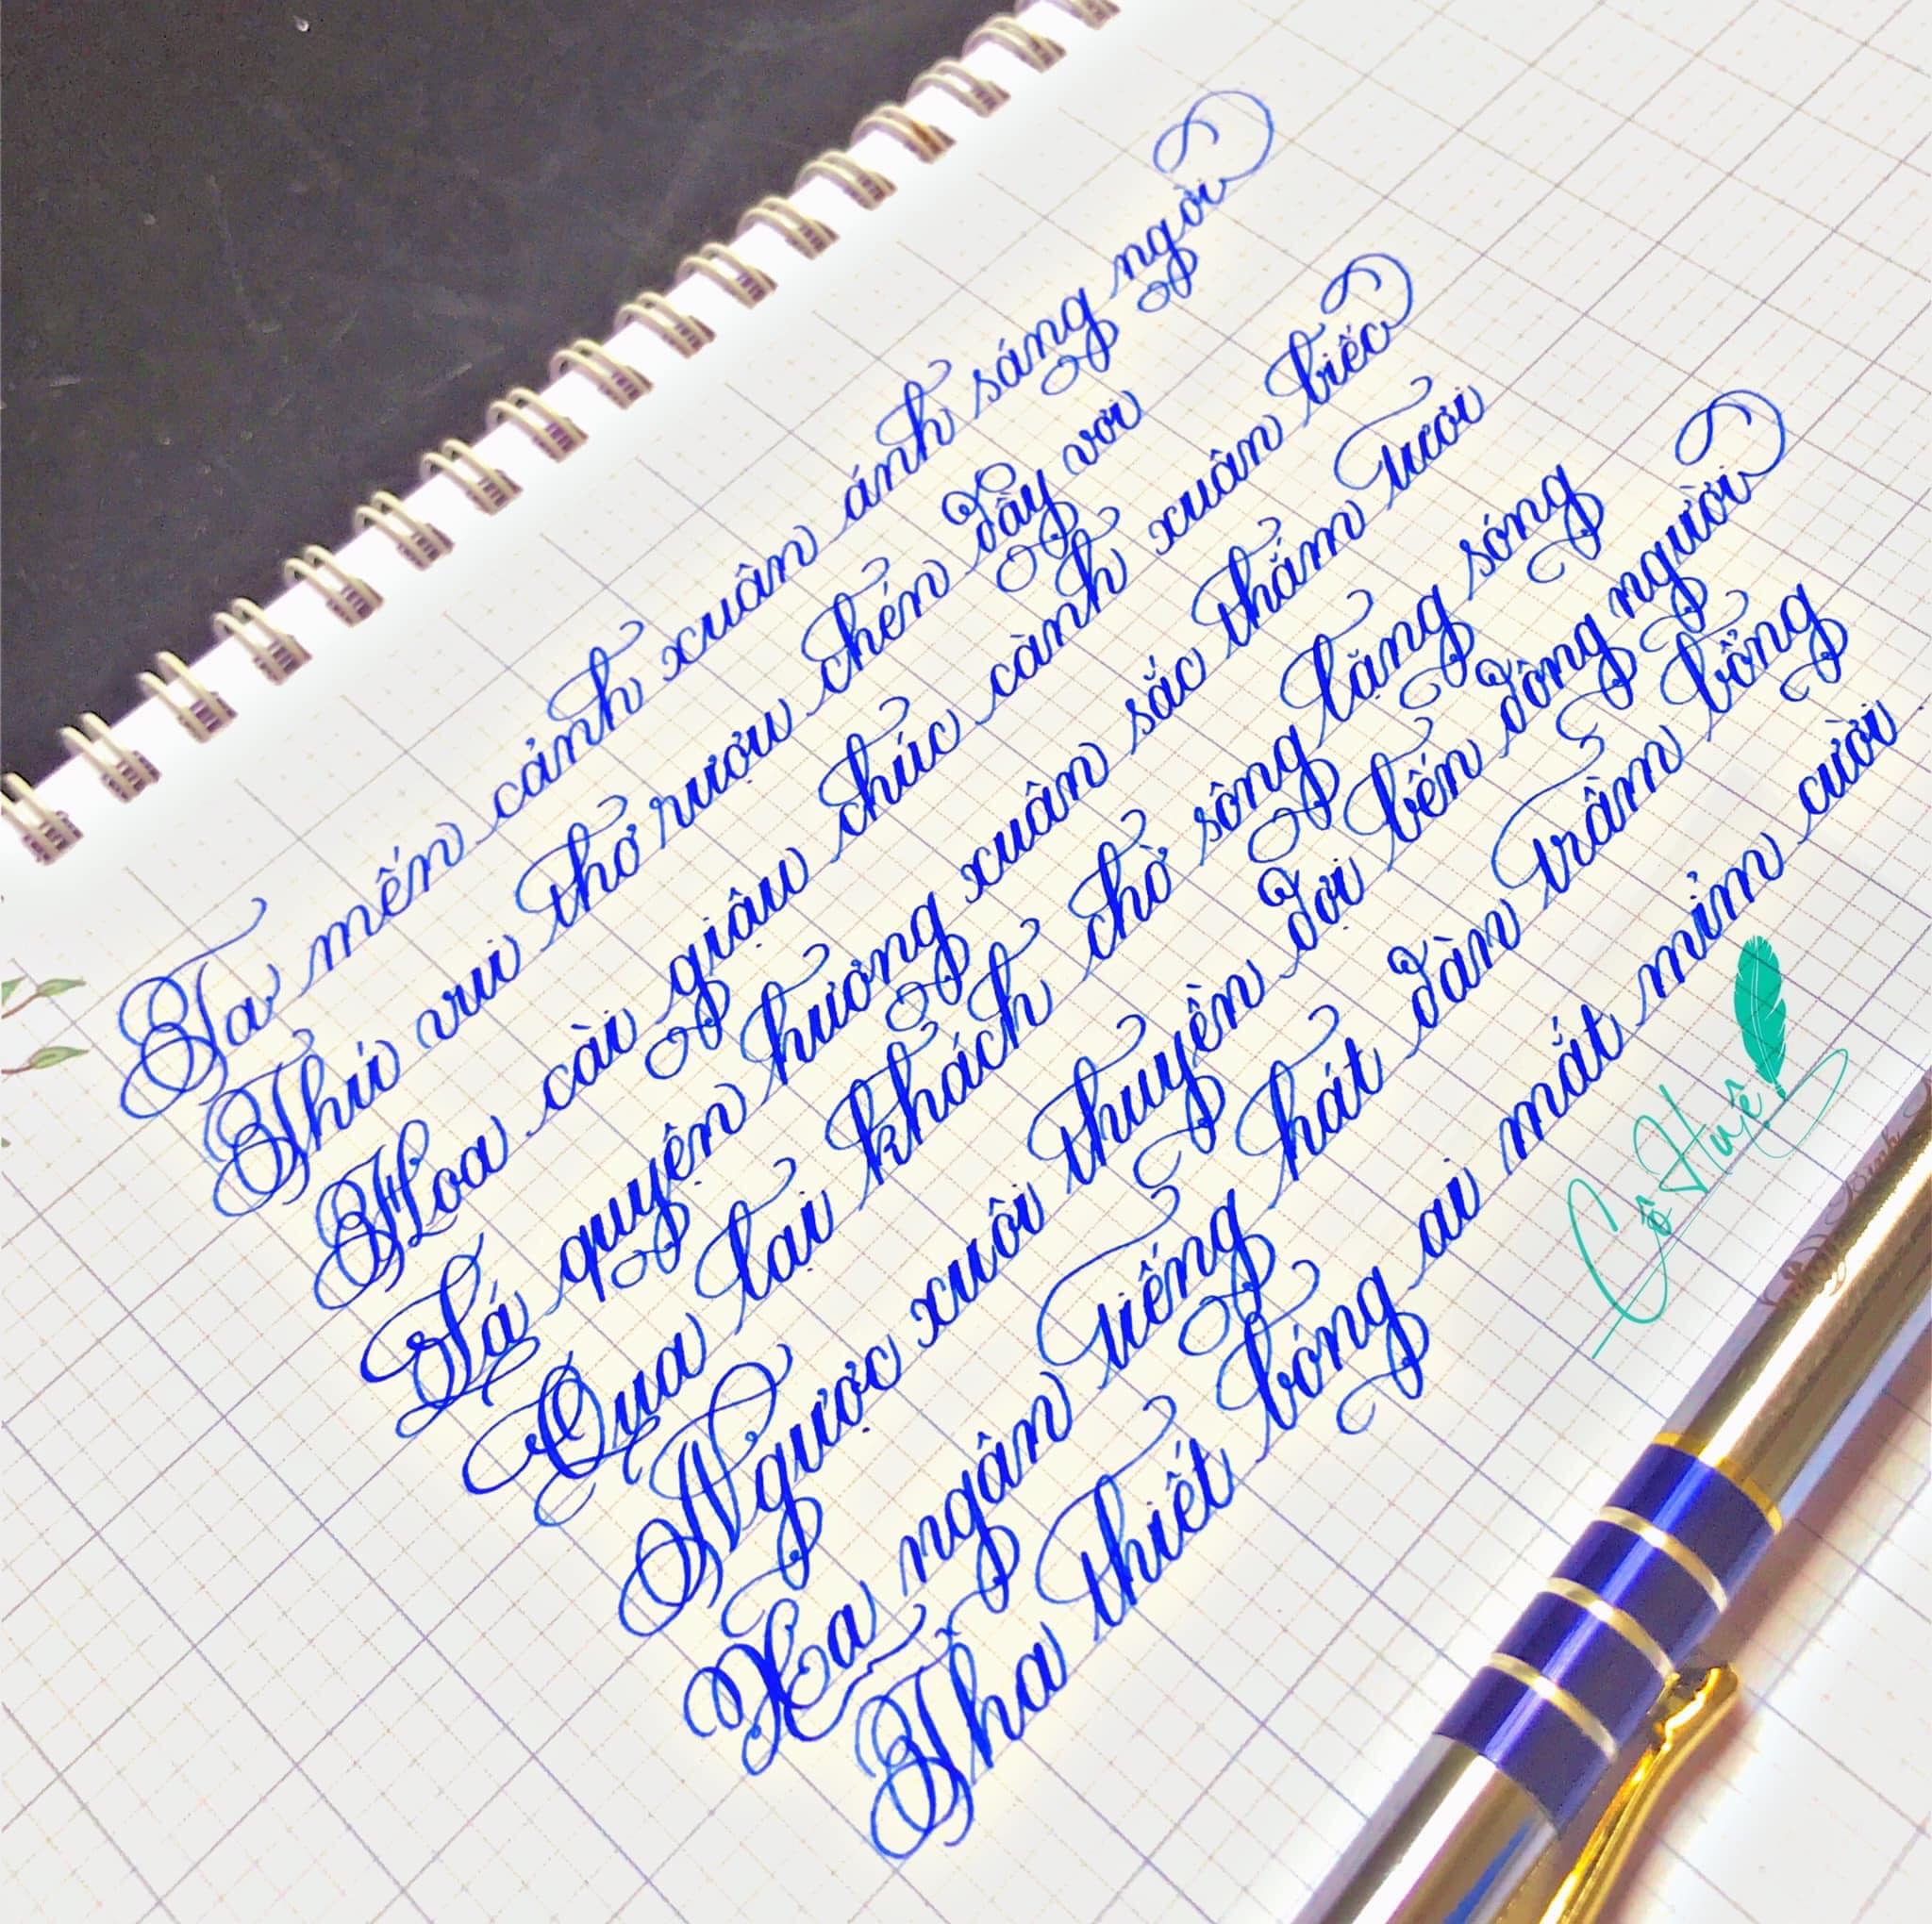 Ta mến cảnh xuân ánh sáng ngời
Thú vui thơ rượu chén đầy vơi
Hoa cài giậu chúc cành xuân biếc
Lá quyện hương xuân sắc thắm tươi
Qua lại khách chờ sông lặng sóng
Ngược xuôi thuyền đợi bến đông người
Xa ngân tiếng hát đàn trầm bổng
Tha thiết bóng ai mắt mỉm cười.
Cô Huệ